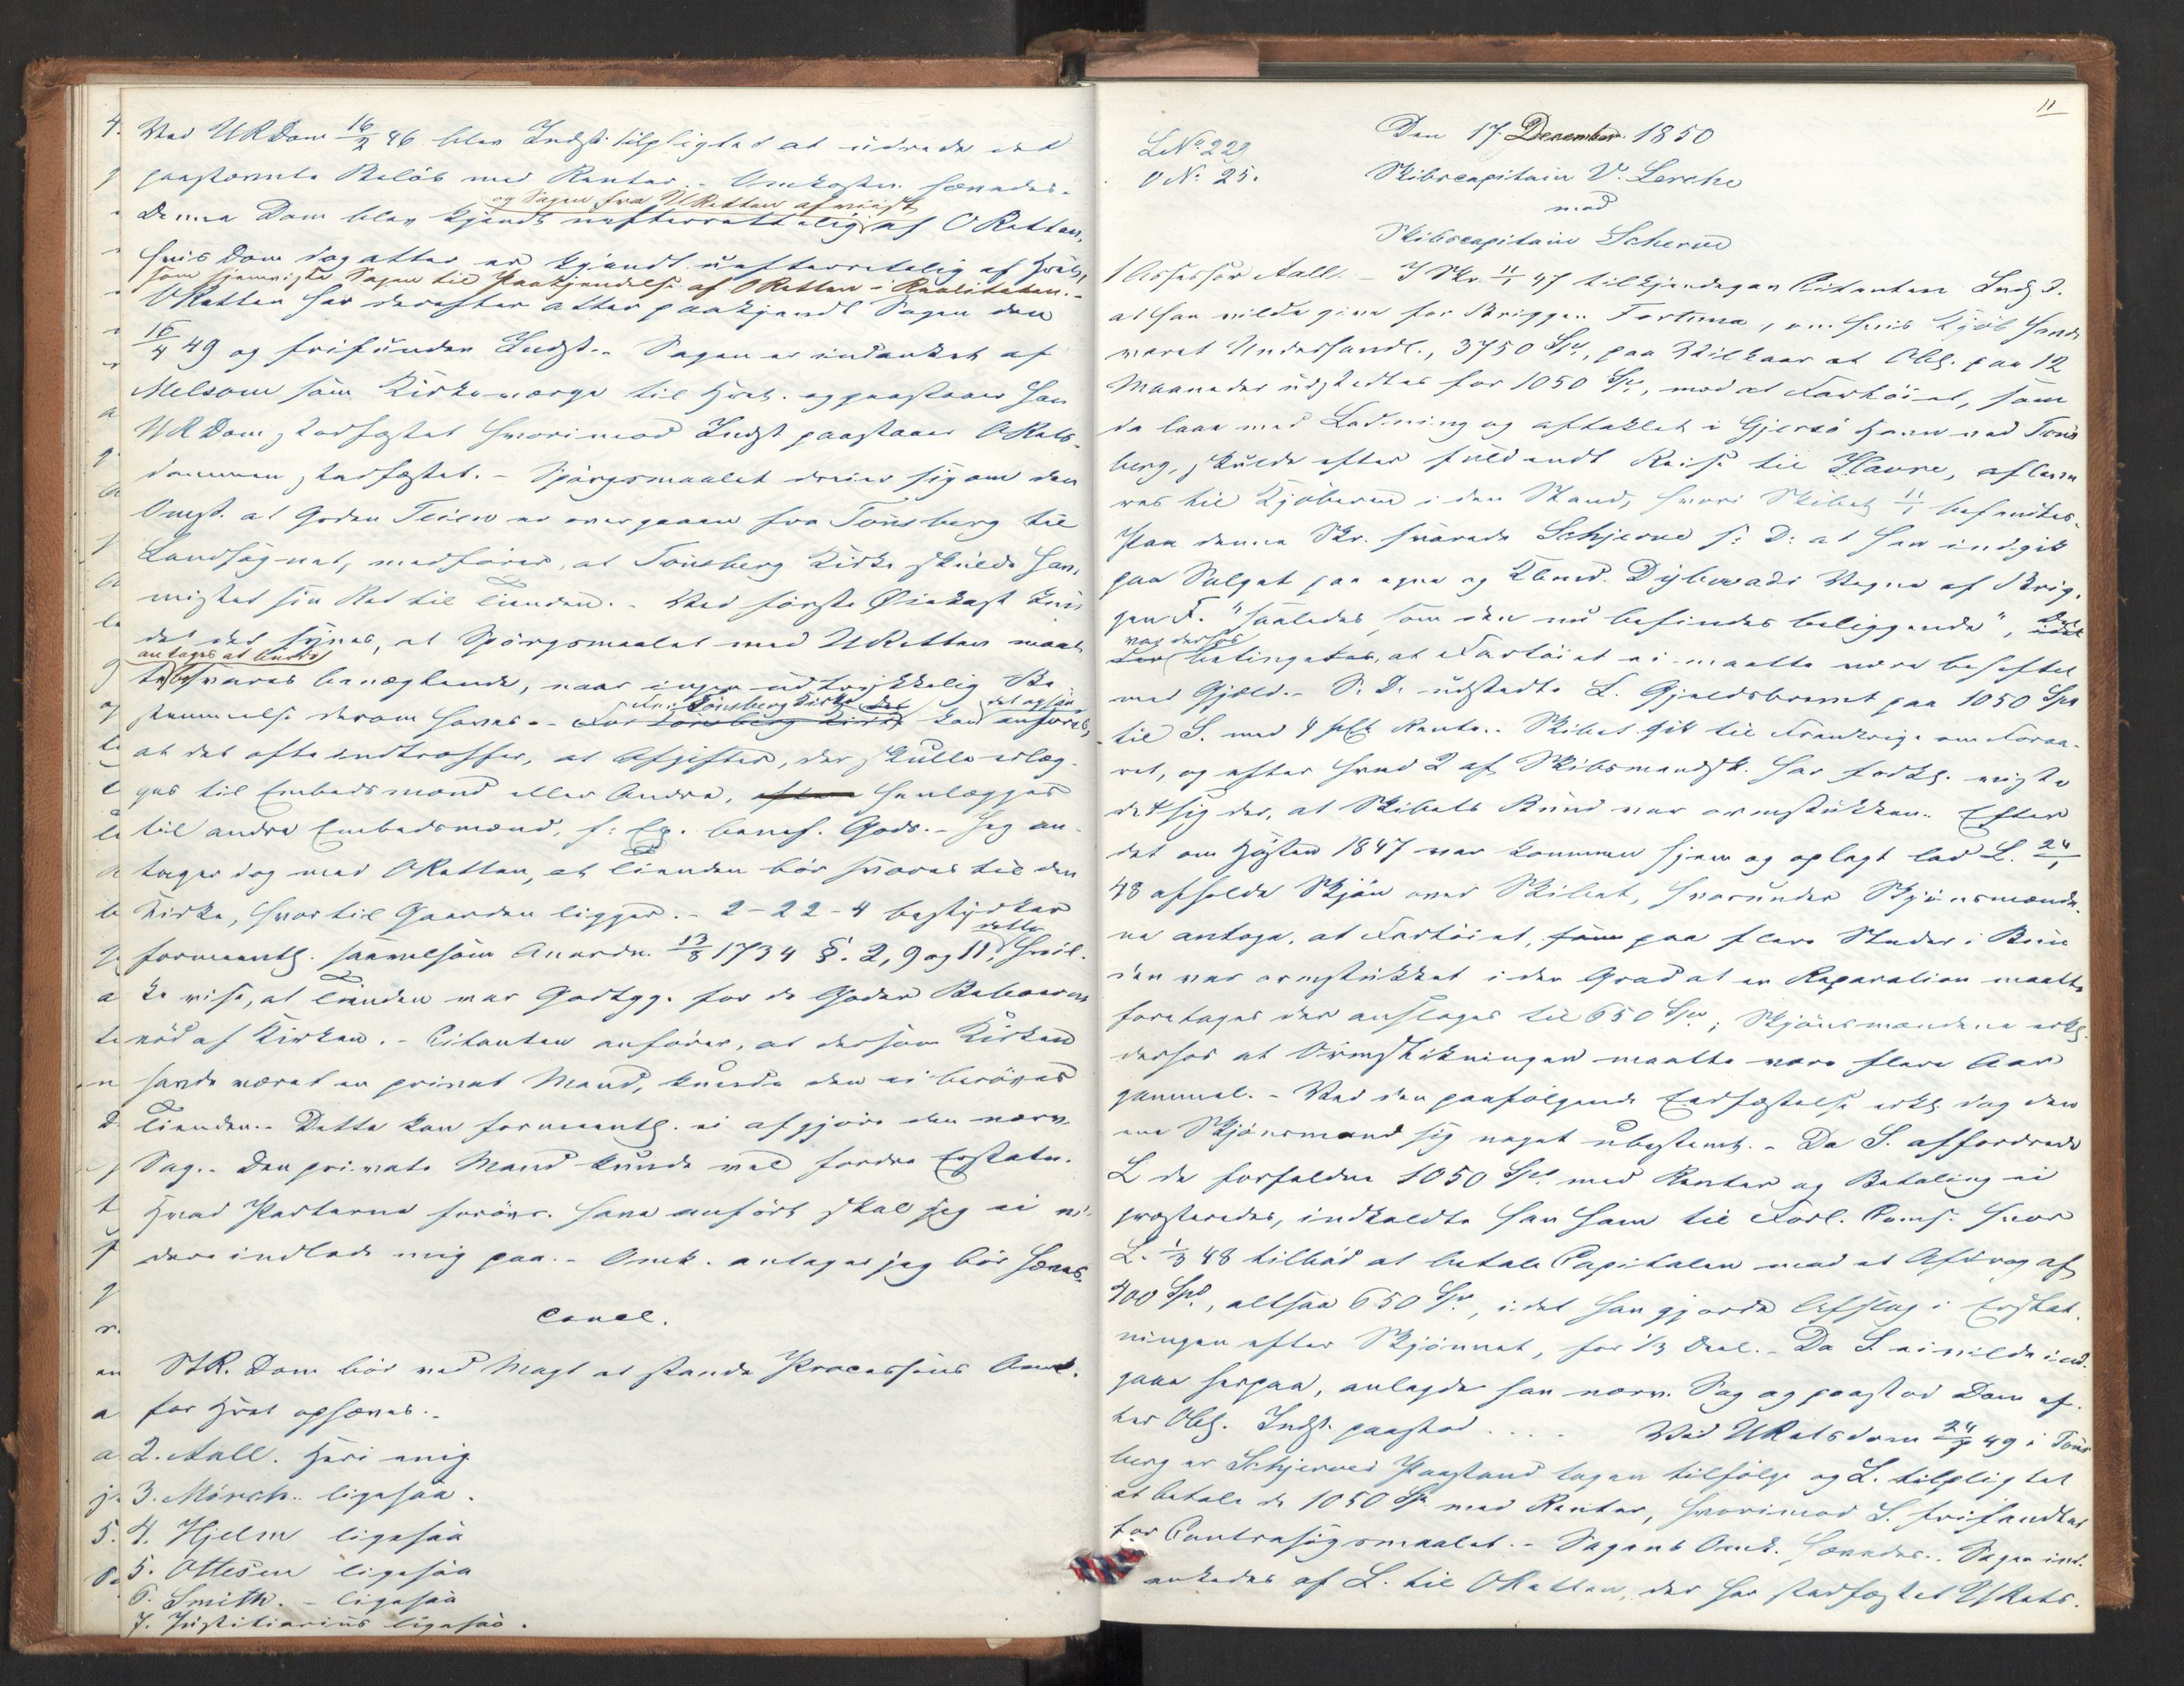 Ved URDom 16/2 46 blev Indst. tilpligtet at udrede det
paastævnte Beløb med Renter. - Omkostn. hævedes.
og Sagen fra URetten afviist
Denne Dom blev kjendt uefterrettelig af ORetten,
hvis Dom dog atter er kjendt uefterretelig af Høiest,
som hjemviste Sagen til Paakjendelse af ORetten i Realiteten. -
ORetten har derefter atter paakjendt Sagen den
16/4 49 og frifunden Indst. - Sagen er indanket af
Melsom som Kirkeværge til Høiest. og paastaaer han
URDom stadfæstet hvorimod Indst paastaaer ORets-
dommen stadfæstet. - Spørgsmaalet dreier sig om den
Omst. at Goden Teien er overgaaen fra Tønsberg til
Landsognet, medfører, at Tønsberg Kirke skulde have
mistet sin Ret til Tienden. - Ved første Øiekast kun
det synes, at Spørgsmaalet med URetten maat
antages at burde
te besvares benægtende, naar ingen udtrykkelig Be
stemmelse derom haves. - For Tønsberg Kirke kan det ogsaa anføres,
at det ofte indtræffer, at Afgifter, der skulle erlæg-
ges til Embedsmænd eller Andre, henlægges
til andre Embedsmænd, f: Ex. benef. Gods. - Jeg an-
tager dog med ORetten, at Tienden bør svares til den
Kirke, hvortil Gaarden ligger. - 2-22-4 bestyrker
formeentl. saavelsom Anordn. 13/8 1734 §. 2, 9 og 11. dette hvil-
ke vise, at Tienden var Godtgj. for de Goder Beboerne
nød af Kirken. - Citanten anfører, at dersom Kirken
havde været en privat Mand, kunde den ei berøves
Tienden. - Dette kan formeentl. ei afgjøre den nærv.
Sag. - Den private Mand kunde vel fordre Erstatn.
Hvad Parterne forøvr. have anført skal jeg ei vi-
dere indlade mig paa. - Omk. antager jeg bør hæves.
Concl.
StR. Dom bør ved Magt at stande Processens Omk.
for Høiest ophæves. -
2. Aall. Heri enig
3. Mørch. ligesaa.
4. Hjelm ligesaa
5. Ottesen ligesaa
6. Smith. - ligesaa
7. Justitiarius ligesaa.
11
Den 17. December 1850
L No 229
O No 25.
Skibscapitain V. Lerche
mod
Skibscapitain Scherve
1 Assessor Aall. - I Skr. 11/1 47 tilkjendegav Citanten Indst.
at han vilde give for Briggen Fortuna, om hvis Kjøb havde
været Underhandl., 3750 Spd, paa Vilkaar at Obl. paa 12
Maaneder udstedtes for 1050 Spd, mod at Fartøiet, som
da laae med Ladning og aftaklet i Gjersø Havn ved Tøns
berg, skulde efter fuldendt Reise til Havre, aflever
res til Kjøberen i den Stand, hvori Skibet 11/1 befandtes.
Paa denne Skr. svarede Schjerve s: D: at han indgik
paa Salget paa egne og Kbmd. Dybwads Vegne af Brig-
gen F. "saaledes som den nu befindes beliggende", Det
var derhos
betinget, at Fartøiet ei maatte være beheftet
med Gjæld. - S. D. udstedte L. Gjeldsbrevet paa 1050 Spd
til S. med 4 pCt Rente. - Skibet gik til Frankrige om Foraa-
ret, og efter hvad 2 af Skibsmandsk. har forkl. viste
det sig der, at Skibets Bund var ormstukken. Efter
det om Høsten 1847 var kommen hjem og oplagt lod L. 24/1
48 afholde Skjøn over Skibet, hvorunder Skjønsmænde-
ne antoge, at Fartøiet, paa flere Steder i Bun
den var ormstukket i den Grad at en Reparation maatte
foretages der ansloges til 650 Spd; Skjønsmændene erkl.
derhos at Ormstikningen maatte være flere Aar
gammel. - Ved den paafølgende Edfæstelse erkl. dog den
ene Skjønsmand sig noget ubestemt. - Da S. affordrede
L de forfaldne 1050 Spd. med Renter og Betaling ei
præsteredes, indkaldte han ham til Forl. Coms. hvor
L. 1/3 48 tilbød at betale Capitalen med et Afdrag af
400 Spd., altsaa 650 Spd., idet han gjorde Afslag i Erstat-
ningen efter Skjønnet, for 1/3 Deel. - Da S. ei vilde ind-
gaae herpaa, anlagde han nærv. Sag og paastod Dom ef-
ter Obl. Indst. paastod .... Ved URetsdom 24/7 49 i Tøns
berg er Schjerves Paastand tagen tilfølge og L. tilpligtet
at betale de 1050 Spd med Renter, hvorimod S. frifandtes
for Contrasøgsmaalet. - Sagens Omk. hævedes. - Sagen ind-
ankedes af L. til ORetten, der har stadfæstet URets-